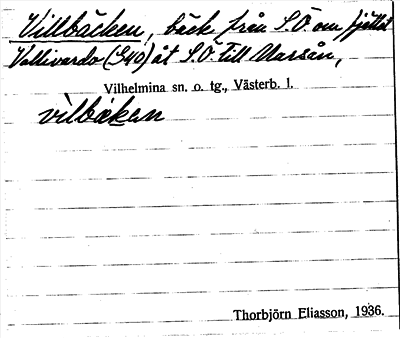 Villbäcken, bäck från S.Ö. om fjället
Vallivardo (940) åt S.Ö. till Marsån,
Vilhelmina sn. o. tg., Västerb. l.
vilbäkan
Thorbjörn Eliasson, 1936.